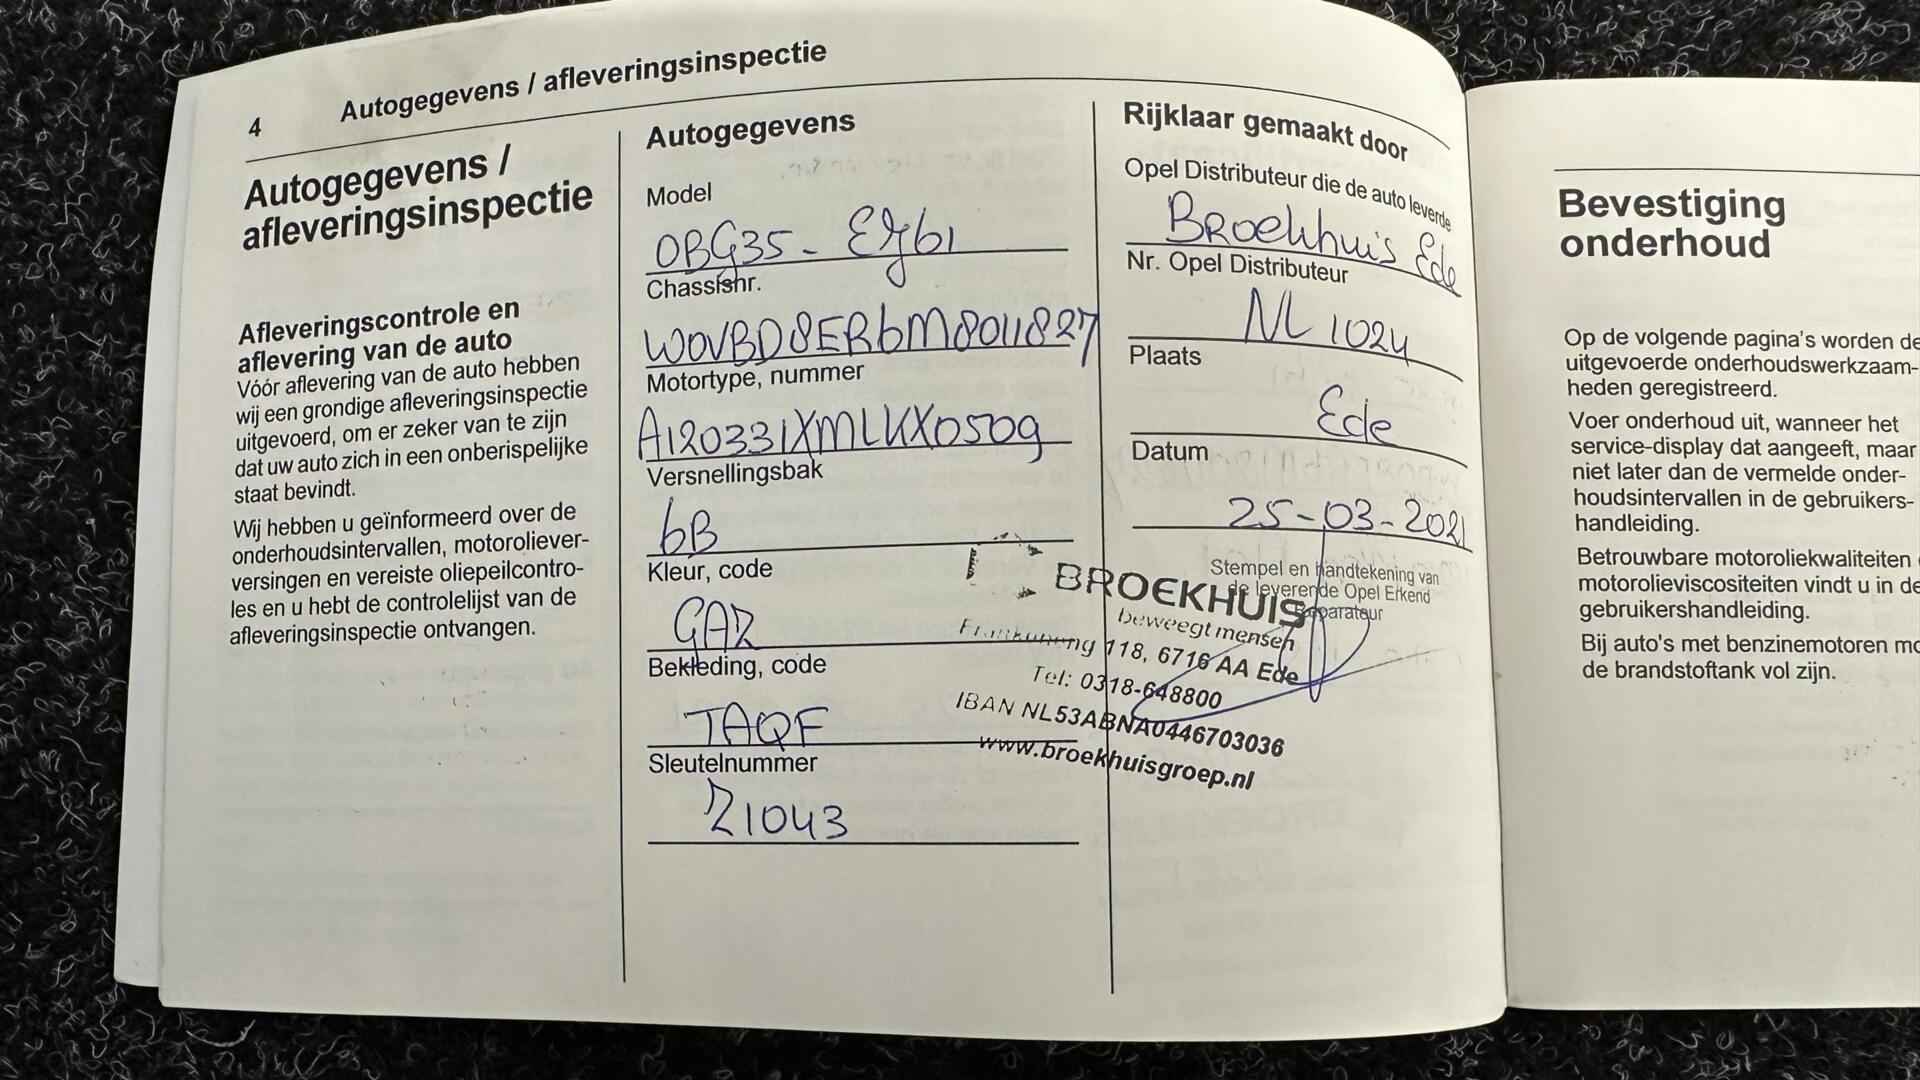 4 Autogegevens / afleveringsinspectie
Autogegevens /
afleveringsinspectie
Afleveringscontrole en
aflevering van de auto
Vóór aflevering van de auto hebben
wij een grondige afleveringsinspectie
uitgevoerd, om er zeker van te zijn
dat uw auto zich in een onberispelijke
staat bevindt.
Wij hebben u geïnformeerd over de
onderhoudsintervallen, motoroliever-
versingen en vereiste oliepeilcontro-
les en u hebt de controlelijst van de
afleveringsinspectie ontvangen.
Autogegevens
Model
OBG35 -
Chassisnr.
W0VBD8ER6M8011827
Motortype, nummer
A120331XMLKX0509
Versnellingsbak
6B
Kleur, code
GAZ
Bekleding, code
TAQF
Sleutelnummer
Z1043
Rijklaar gemaakt door
Opel Distributeur die de auto leverde
Broekhuis Ede
Nr. Opel Distributeur
NL 1024
Plaats
Ede
Datum
25-03-2021
Stempel en handtekening van
de leverende Opel Erkend
Reparateur
BROEKHUIS
beweegt mensen
118, 6716 AA Ede
Tel: 0318-648800
IBAN NL53ABNA0446703036
www.broekhuisgroep.nl
Bevestiging
onderhoud
Op de volgende pagina's worden de
uitgevoerde onderhoudswerkzaam-
heden geregistreerd.
Voer onderhoud uit, wanneer het
service-display dat aangeeft, maar
niet later dan de vermelde onder-
houdsintervallen in de gebruikers-
handleiding.
Betrouwbare motoroliekwaliteiten
motorolieviscositeiten vindt u in de
gebruikershandleiding.
Bij auto's met benzinemotoren mo
de brandstoftank vol zijn.